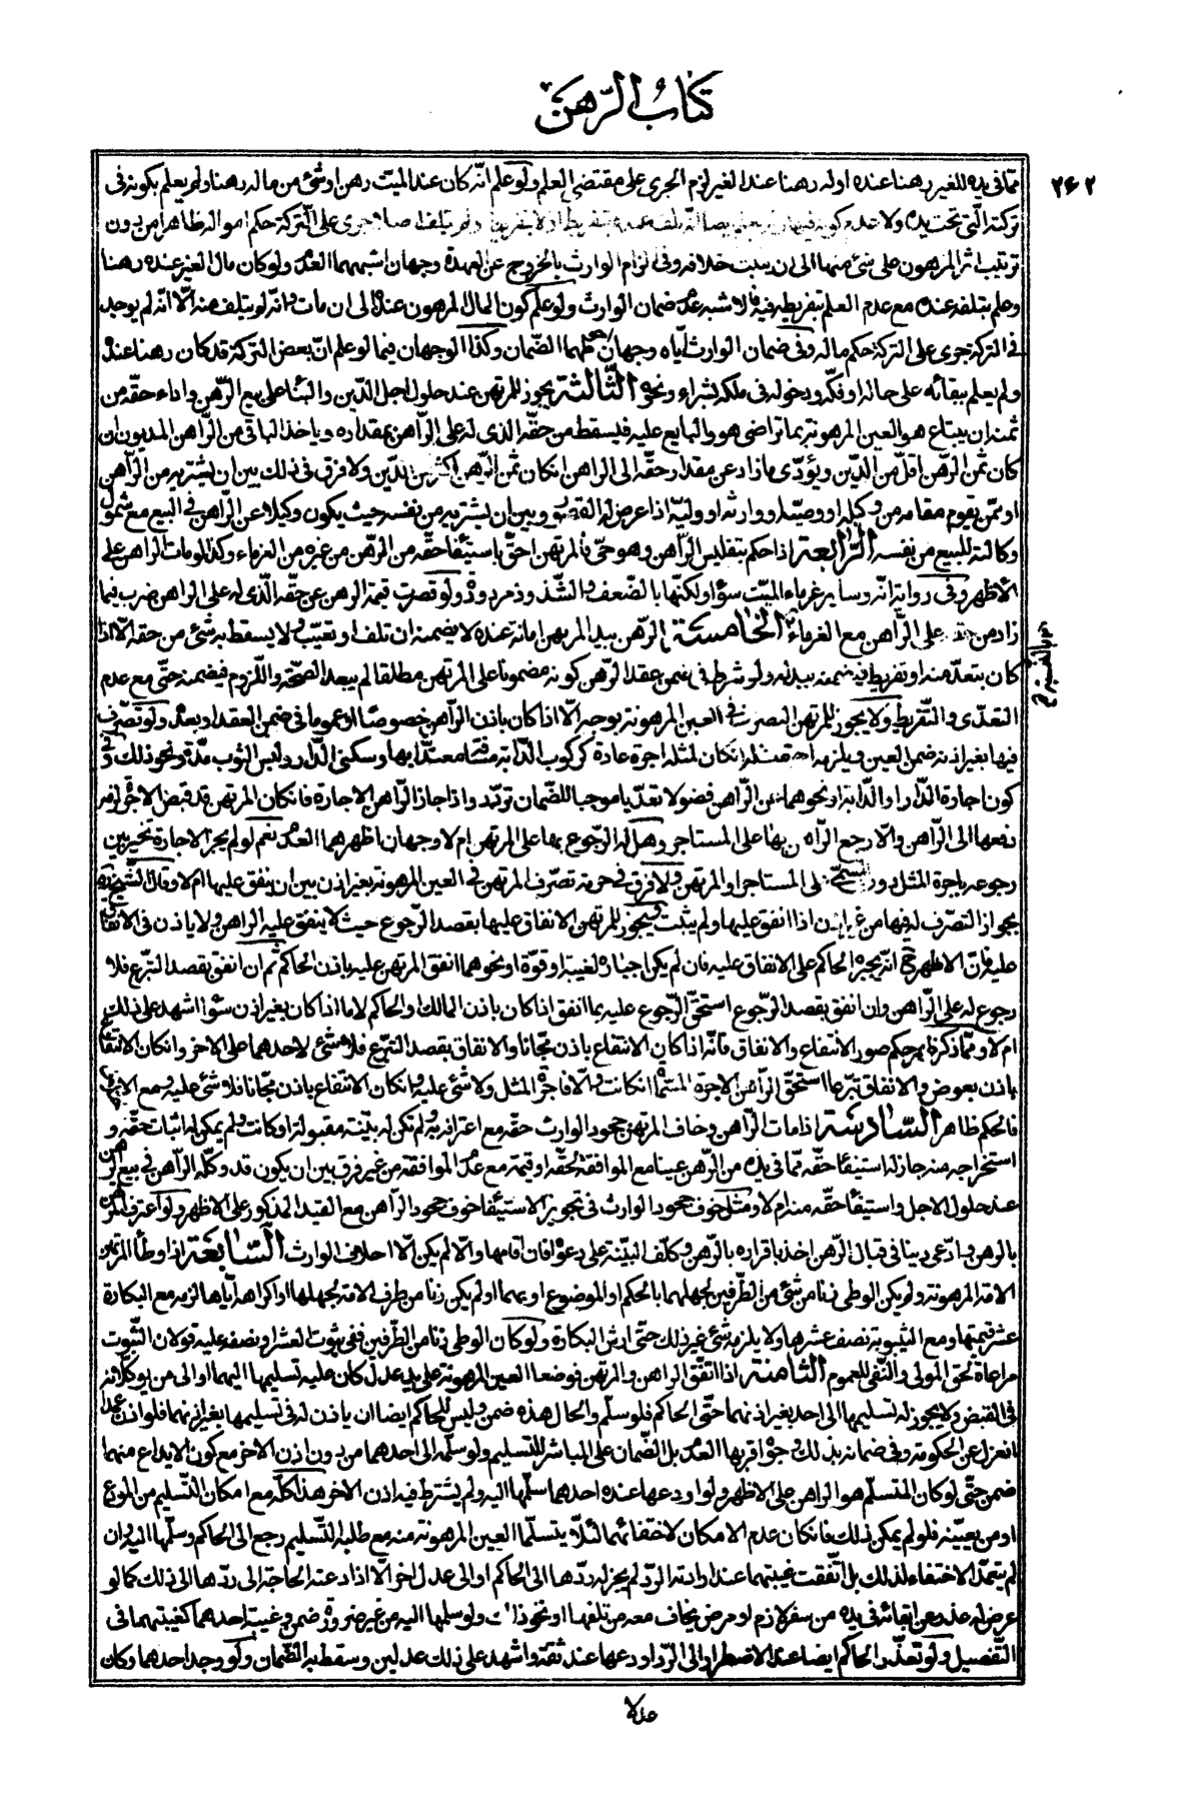 كتاب الرهن
٢٤٢
ممّا في يده للغير رهنا عنده او له رهنا عند الغير لزم الجرى على مقتضى العلم ولو علم انّه كان عند الميت رهن او شئ من ماله رهنا ولم يعلم بكونه في
تركته الّتى تحت يده ولا عدم كونه فيها جرى على التركة حكم امواله ظاهرا من دون
ترتيب اثر المرهون على شئ منها الى ان يثبت خلافه وفى الزام الوارث بالخروج عن العهدة وجهان اشبههما العدم ولو كان مال الغير عنده رهنا
وعلم بتلفه عنده مع عدم العلم بتفريطه فيه فالاشبه عدم ضمان الوارث ولو علم كون المال المرهون عنده الى ان مات وانّه لم يتلف منه الّا انّه لم يوجد
في التركة جرى على التركة حكم ماله وفى ضمان الوارث ايّاه وجهان اظهرهما الضّمان وكذا الوجهان فيما لو علم انّ بعض التركة قد كان رهنا عنده
ولم يعلم ببقائه على حاله او فكّه ودخوله في ملكه بشراء ونحوه الثّالثة يجوز للمرتهن عند حلول اجل الدّين والبناء على بيع الرّهن واداء حقّه من
ثمنه ان يبتاع هو العين المرهونة بما تراضى هو والبايع عليه فيسقط من حقّه الذى له على الرّاهن بمقداره وياخذ الباقى من الرّاهن المديون ان
كان ثمن الرّهن اقلّ من الدّين ويؤدّى ما زاد عن مقدار حقّه الى الراهن ان كان ثمن الرّهن اكثر من الدّين ولا فرق في ذلك بين ان يشتريه من الرّاهن
او ممّن يقوم مقامه من وكيله او وصيّه او وارثه او وليّه اذا عرض له القصور وبين ان يشتريه من نفسه حيث يكون وكيلا عن الرّاهن في البيع مع شمول
وكالته للبيع من نفسه الرّابعة اذا حكم بتفليس الرّاهن وهو حىّ فالمرتهن احقّ باستيفاء حقّه من الرّهن من غيره من الغرماء وكذا لو مات الراهن على
الاظهر وفى رواية انّه وساير غرماء الميّت سواء ولكنّها بالضّعف والشّذوذ مردودة ولو قصرت قيمة الرهن عن حقّه الّذى له على الراهن ضرب فيما
زاد من حقّه على الرّاهن مع الغرماء الخامسة الرّهن بيد المرتهن امانة عنده لا يضمنه ان تلف او تعيّب ولا يسقط به شئ من حقه الّا اذا
كان بتعدّ منه او تفريط فيه فيضمنه ببدله ولو شرط في ضمن عقد الرّهن كونه مضمونا على المرتهن مطلقا لم يبعد الصّحّة واللّزوم فيضمنه حتّى مع عدم
التعدّى والتّفريط ولا يجوز للمرتهن التصرّف في العين المرهونة بوجه الّا اذا كان باذن الرّاهن خصوصا او عموما في ضمن العقد او بعده ولو تصرّف
فيها بغير اذنه ضمن العين ويلزمه اجرة مثله ان كان لمثله اجرة عادة كركوب الدّابّة مسافة معتدّا بها وسكنى الدّار ولبس الثوب مدّة ونحو ذلك وفى
كون اجارة الدّار او الدّابّة او نحوهما من الرّاهن فضولا تعدّيا موجبا للضّمان تردّد واذا اجاز الرّاهن الاجارة فان كان المرتهن قد قبض الاجرة لزمه
دفعها الى الرّاهن والّا رجع الرّاهن بها على المستاجر وهل له الرّجوع بها على المرتهن ام لا وجهان اظهرهما العدم نعم لو لم يجز الاجارة تخيّر بين
رجوعه باجرة المثل دون المسمّى على المستاجر او المرتهن ولا فرق في حرمة تصرّف المرتهن في العين المرهونة بغير اذن بين ان ينفق عليها ام لا وقال الشّيخ ره
بجواز التصرّف له فيها من غير اذن اذا انفق عليها ولم يثبت ويجوز للمرتهن الانفاق عليها بقصد الرّجوع حيث لا ينفق عليه الراهن ولا ياذن في الانفاق
عليه فانّ الاظهر ح انّه يجبره الحاكم على الانفاق عليه فان لم يكن اجباره لغيبة او قوّة او نحوهما انفق المرتهن عليه باذن الحاكم ثم ان انفق بقصد التبرّع فلا
رجوع له على الرّاهن وان انفق بقصد الرّجوع استحقّ الرّجوع عليه بما انفق اذا كان باذن المالك او الحاكم لا ما اذا كان بغير اذن سواء اشهد على ذلك
ام لا وممّا ذكرنا يعلم حكم صور الانتفاع والانفاق فانّه اذا كان الانتفاع باذن مجّانا والانفاق بقصد التبرّع فلا شئ لاحدهما على الاخر وان كان الانتفاع
باذن بعوض والانفاق تبرّعا استحقّ الرّاهن الاجرة المسمّاة ان كانت والّا فاجرة المثل ولا شئ عليه وان كان الانتفاع باذن مجّانا فلا شئ عليه ومع الابهام
فالحكم ظاهر السّادسة اذا مات الرّاهن وخاف المرتهن جحود الوارث حقّه مع اعترافه به ولم تكن له بيّنة مقبولة او كانت ولم يمكن له اثبات حقّه و
استخراجه منه جاز له استيفاء حقّه ممّا في يده من الرّهن عينا مع الموافقة لحقّه او قيمة مع عدم الموافقة من غير فرق بين ان يكون قد وكّله الرّاهن في بيع الرّهن
عند حلول الاجل واستيفاء حقّه منه ام لا ومثل خوف جحود الوارث في تجويز الاستيفاء خوف جحود الرّاهن مع القيد المذكور على الاظهر ولو اعترف المرتهن
بالرهن وادّعى دينا في قبال الرّهن اخذ باقراره بالرّهن وكلّف البيّنة على دعواه فان اقامها والّا لم يكن الّا احلاف الوارث السّابعة اذا وطأ المرتهن
الامة المرهونة ولم يكن الوطى زنا من شئ من الطّرفين لجهلهما بالحكم او الموضوع او بهما او لم يكن زنا من طرف الامة لجهلها او اكراهه ايّاها لزمه مع البكارة
عشر قيمتها ومع الثيبوبة نصف عشرها ولا يلزمه شئ غير ذلك حتّى ارش البكارة ولو كان الوطى زنا من الطّرفين ففى ثبوت العشر او نصفه عليه قولان الثّبوت
مراعاة لحق المولى والنّفى للعموم الثّامنة اذا اتّفق الراهن والمرتهن فوضعا العين المرهونة على يد عدل كان عليه تسليمها اليهما او الى من يوكّلانه
في القبض ولا يجوز له تسليمها الى احد بغير اذنهما حتّى الحاكم فلو سلّم والحال هذه ضمن وليس للحاكم ايضا ان ياذن له في تسليمها بغير اذنهما فلو اذن عمدا
انعزل عن الحكومة وفى ضمانه بذلك وجوه اقربها العدم بل الضّمان على المباشر للتسليم ولو سلّمه الى احدهما من دون اذن الاخر مع كون الايداع منهما
ضمن حتّى لو كان المتسلّم هو الراهن على الاظهر ولو اودعها عنده احدهما سلّمها اليه ولم يشترط فيه اذن الاخر هذا كلّه مع امكان التّسليم من المودع
او من يعيّنه فلو لم يمكن ذلك فان كان عدم الامكان لاختفائهما لئلّا يتسلّما العين المرهونة منه مع طلبه التّسليم رجع الى الحاكم وسلّمها اليه وان
لم يتعمّدا الاختفاء لذلك بل اتّفقت غيبتهما عند ارادته الردّ لم يجز له ردّها الى الحاكم او الى عدل اخر الّا اذا دعته الحاجة الى ردّها الى ذلك كما لو
عرض له عذر عن ابقائه في يده من سفر لازم او مرض يخاف معه من تلفها او نحو ذلك ولو سلّمها اليه من غير ضرورة ضمن وغيبة احدهما كغيبتهما في
التّفصيل ولو تعذّر الحاكم ايضا عند الاضطرار الى الرّد اودعها عند ثقة واشهد على ذلك عدلين وسقط به الضّمان ولو وجد احدهما وكان
عدلا